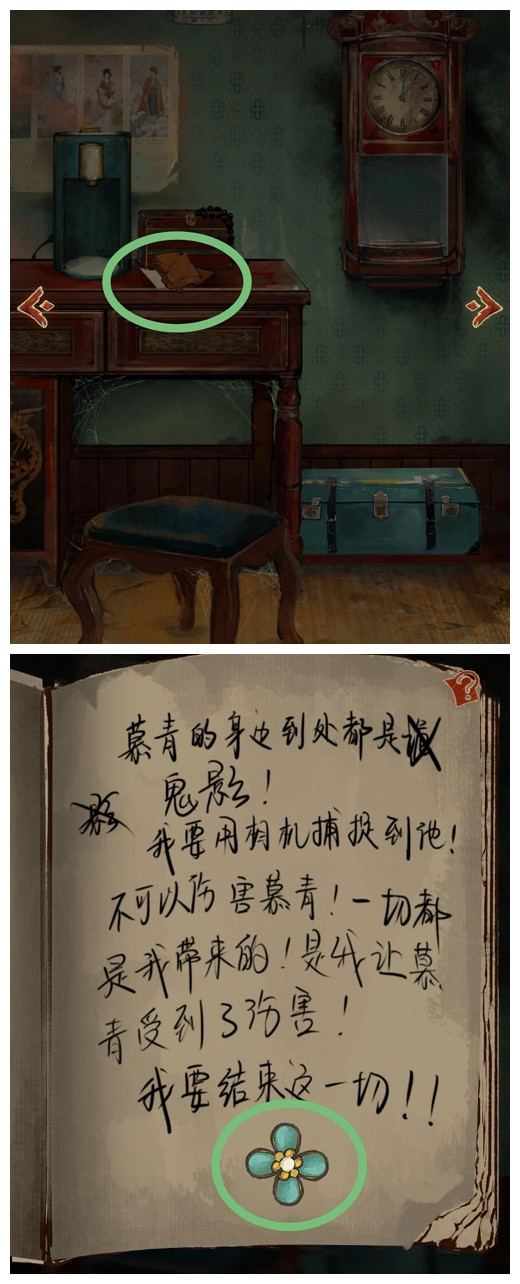 慕青的身边到处都是
鬼影！
我要用相机捕捉到他！
不可以伤害慕青！一切都
是我带来的！是我让慕
青受到了伤害！
我要结束这一切！！